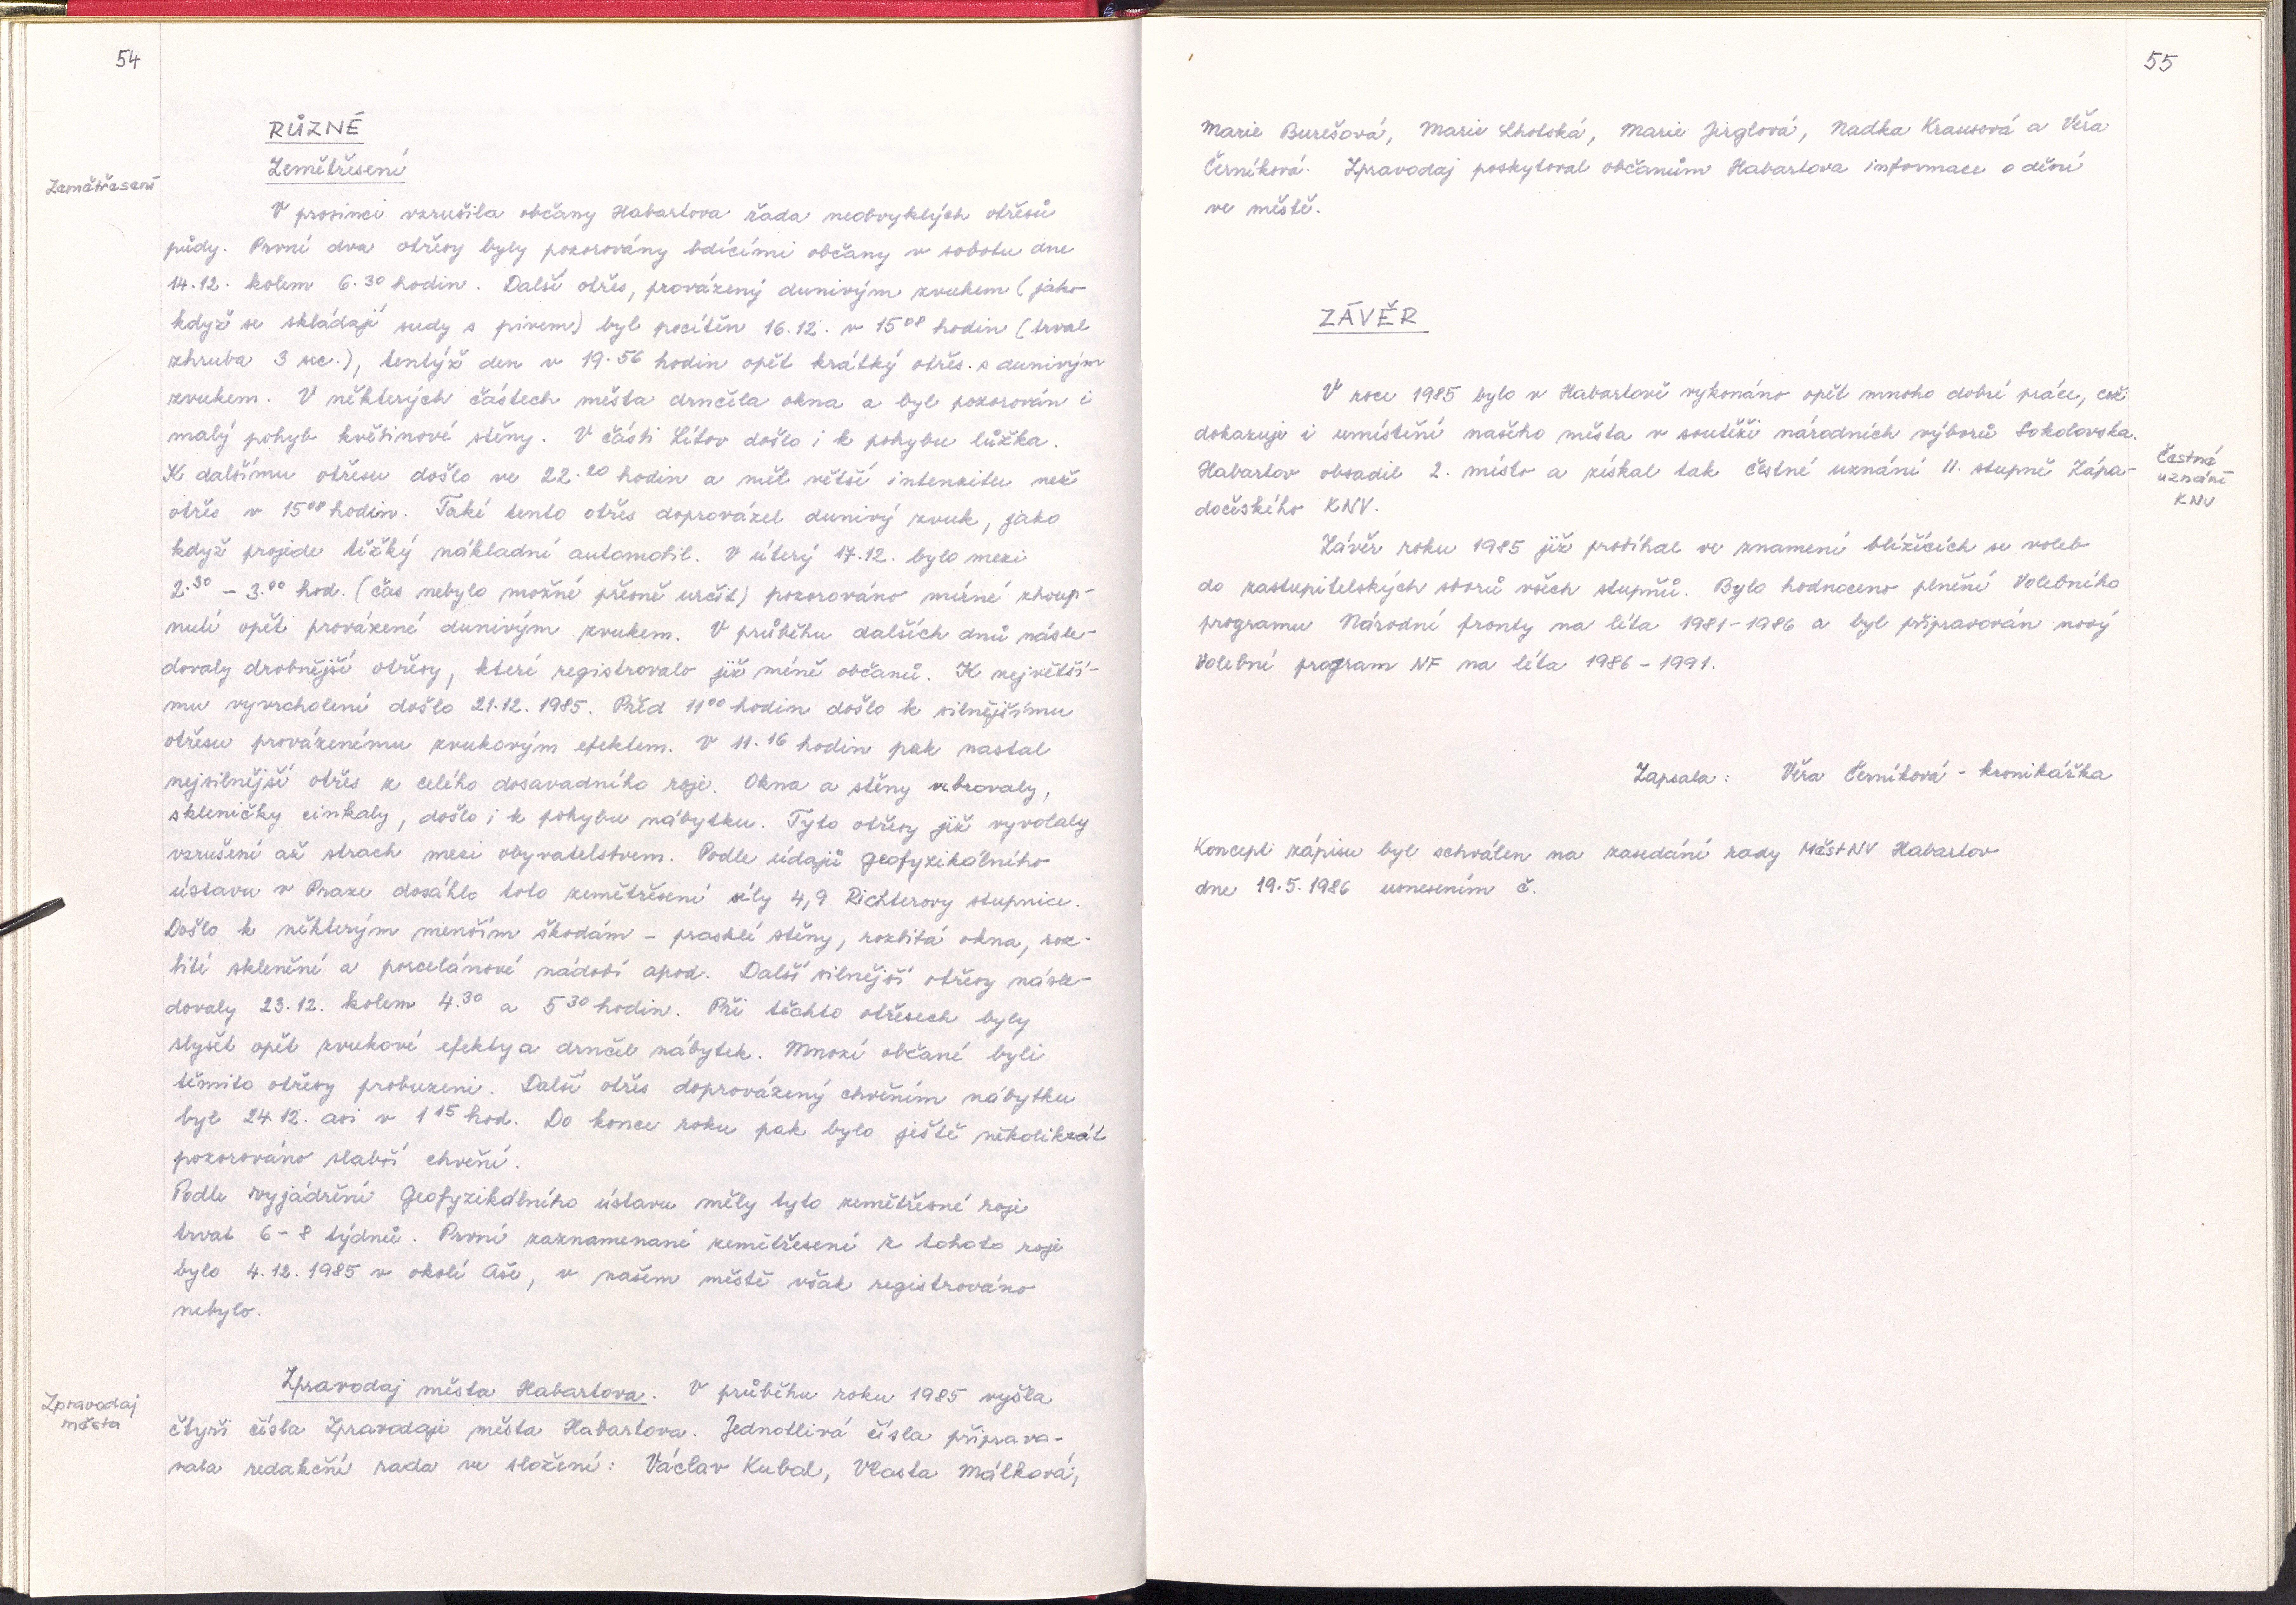 54
RŮZNÉ
Zemětřesení
Zemětřesení
V prosinci vzrušila občany Habartova řada neobvyklých otřesů
půdy. První dva otřesy byly pozorovány bdícími občany v sobotu dne
14.12. kolem 6.30 hodin. Další otřes, provázený dunivým zvukem (jako
když se skládají sudy s pivem) byl pocítěn 16.12. v 15 08 hodin (trval
zhruba 3 sec.), tentýž den v 19.56 hodin opět krátký otřes s dunivým
zvukem. V některých částech města drnčela okna a byl pozorován i
malý pohyb květinové stěny. V části Lítov došlo i k pohybu lůžka.
K dalšímu otřesu došlo ve 22.20 hodin a měl větší intenzitu než
otřes v 15 08 hodin. Také tento otřes doprovázel dunivý zvuk, jako
když projede těžký nákladní automobil. V úterý 17.12. bylo mezi
2.30 - 3.00 hod. (čas nebylo možné přesně určit) pozorováno mírné zhoup-
nutí opět provázené dunivým zvukem. V průběhu dalších dnů násle-
dovaly drobnější otřesy, které registrovalo již méně občanů. K největší-
mu vyvrcholení došlo 21.12.1985. Před 11 00 hodin došlo k silnějšímu
otřesu provázenému zvukovým efektem. V 11.16 hodin pak nastal
nejsilnější otřes z celého dosavadního roje. Okna a stěny vibrovaly,
skleničky cinkaly, došlo i k pohybu nábytku. Tyto otřesy již vyvolaly
vzrušení až strach mezi obyvatelstvem. Podle údajů geofyzikálního
ústavu v Praze dosáhlo toto zemětřesení síly 4,9 Richterovy stupnice.
Došlo k některým menším škodám - prasklé stěny, rozbitá okna, roz-
bité skleněné a porcelánové nádobí apod. Další silnější otřesy násle-
dovaly 23.12. kolem 4.30 a 5 30 hodin. Při těchto otřesech byly
slyšet opět zvukové efekty a drnčel nábytek. Mnozí občané byli
těmito otřesy probuzeni. Další otřes doprovázený chvěním nábytku
byl 24.12. asi v 1 15 hod. Do konce roku pak bylo ještě několikrát
pozorováno slabší chvění.
Podle vyjádření Geofyzikálního ústavu měly tyto zemětřesné roje
trvat 6-8 týdnů. První zaznamenané zemětřesení z tohoto roje
bylo 4.12.1985 v okolí Aše, v našem městě však registrováno
nebylo.
Zpravodaj
města
Zpravodaj města Habartova. V průběhu roku 1985 vyšla
čtyři čísla Zpravodaje města Habartova. Jednotlivá čísla připravo-
vala redakční rada ve složení: Václav Kubal, Vlasta Málková,
55
Marie Burešová, Marie Lhotská, Marie Jirglová, Nadka Krausová a Věra
Černíková. Zpravodaj poskytoval občanům Habartova informace o dění
ve městě.
ZÁVĚR
V roce 1985 bylo v Habartově vykonáno opět mnoho dobré práce, což
dokazuje i umístění našeho města v soutěži národních výborů Sokolovska.
Habartov obsadil 2. místo a získal tak čestné uznání II. stupně Zápa-
dočeského KNV.
Čestné
uznání
KNV
Závěr roku 1985 již probíhal ve znamení blížících se voleb
do zastupitelských sborů všech stupňů. Bylo hodnoceno plnění Volebního
programu Národní fronty na léta 1981-1986 a byl připravován nový
Volební program NF na léta 1986-1991.
Zapsala: Věra Černíková - kronikářka
Koncept zápisu byl schválen na zasedání rady MěstNV Habartov
dne 19.5.1986 usnesením č.